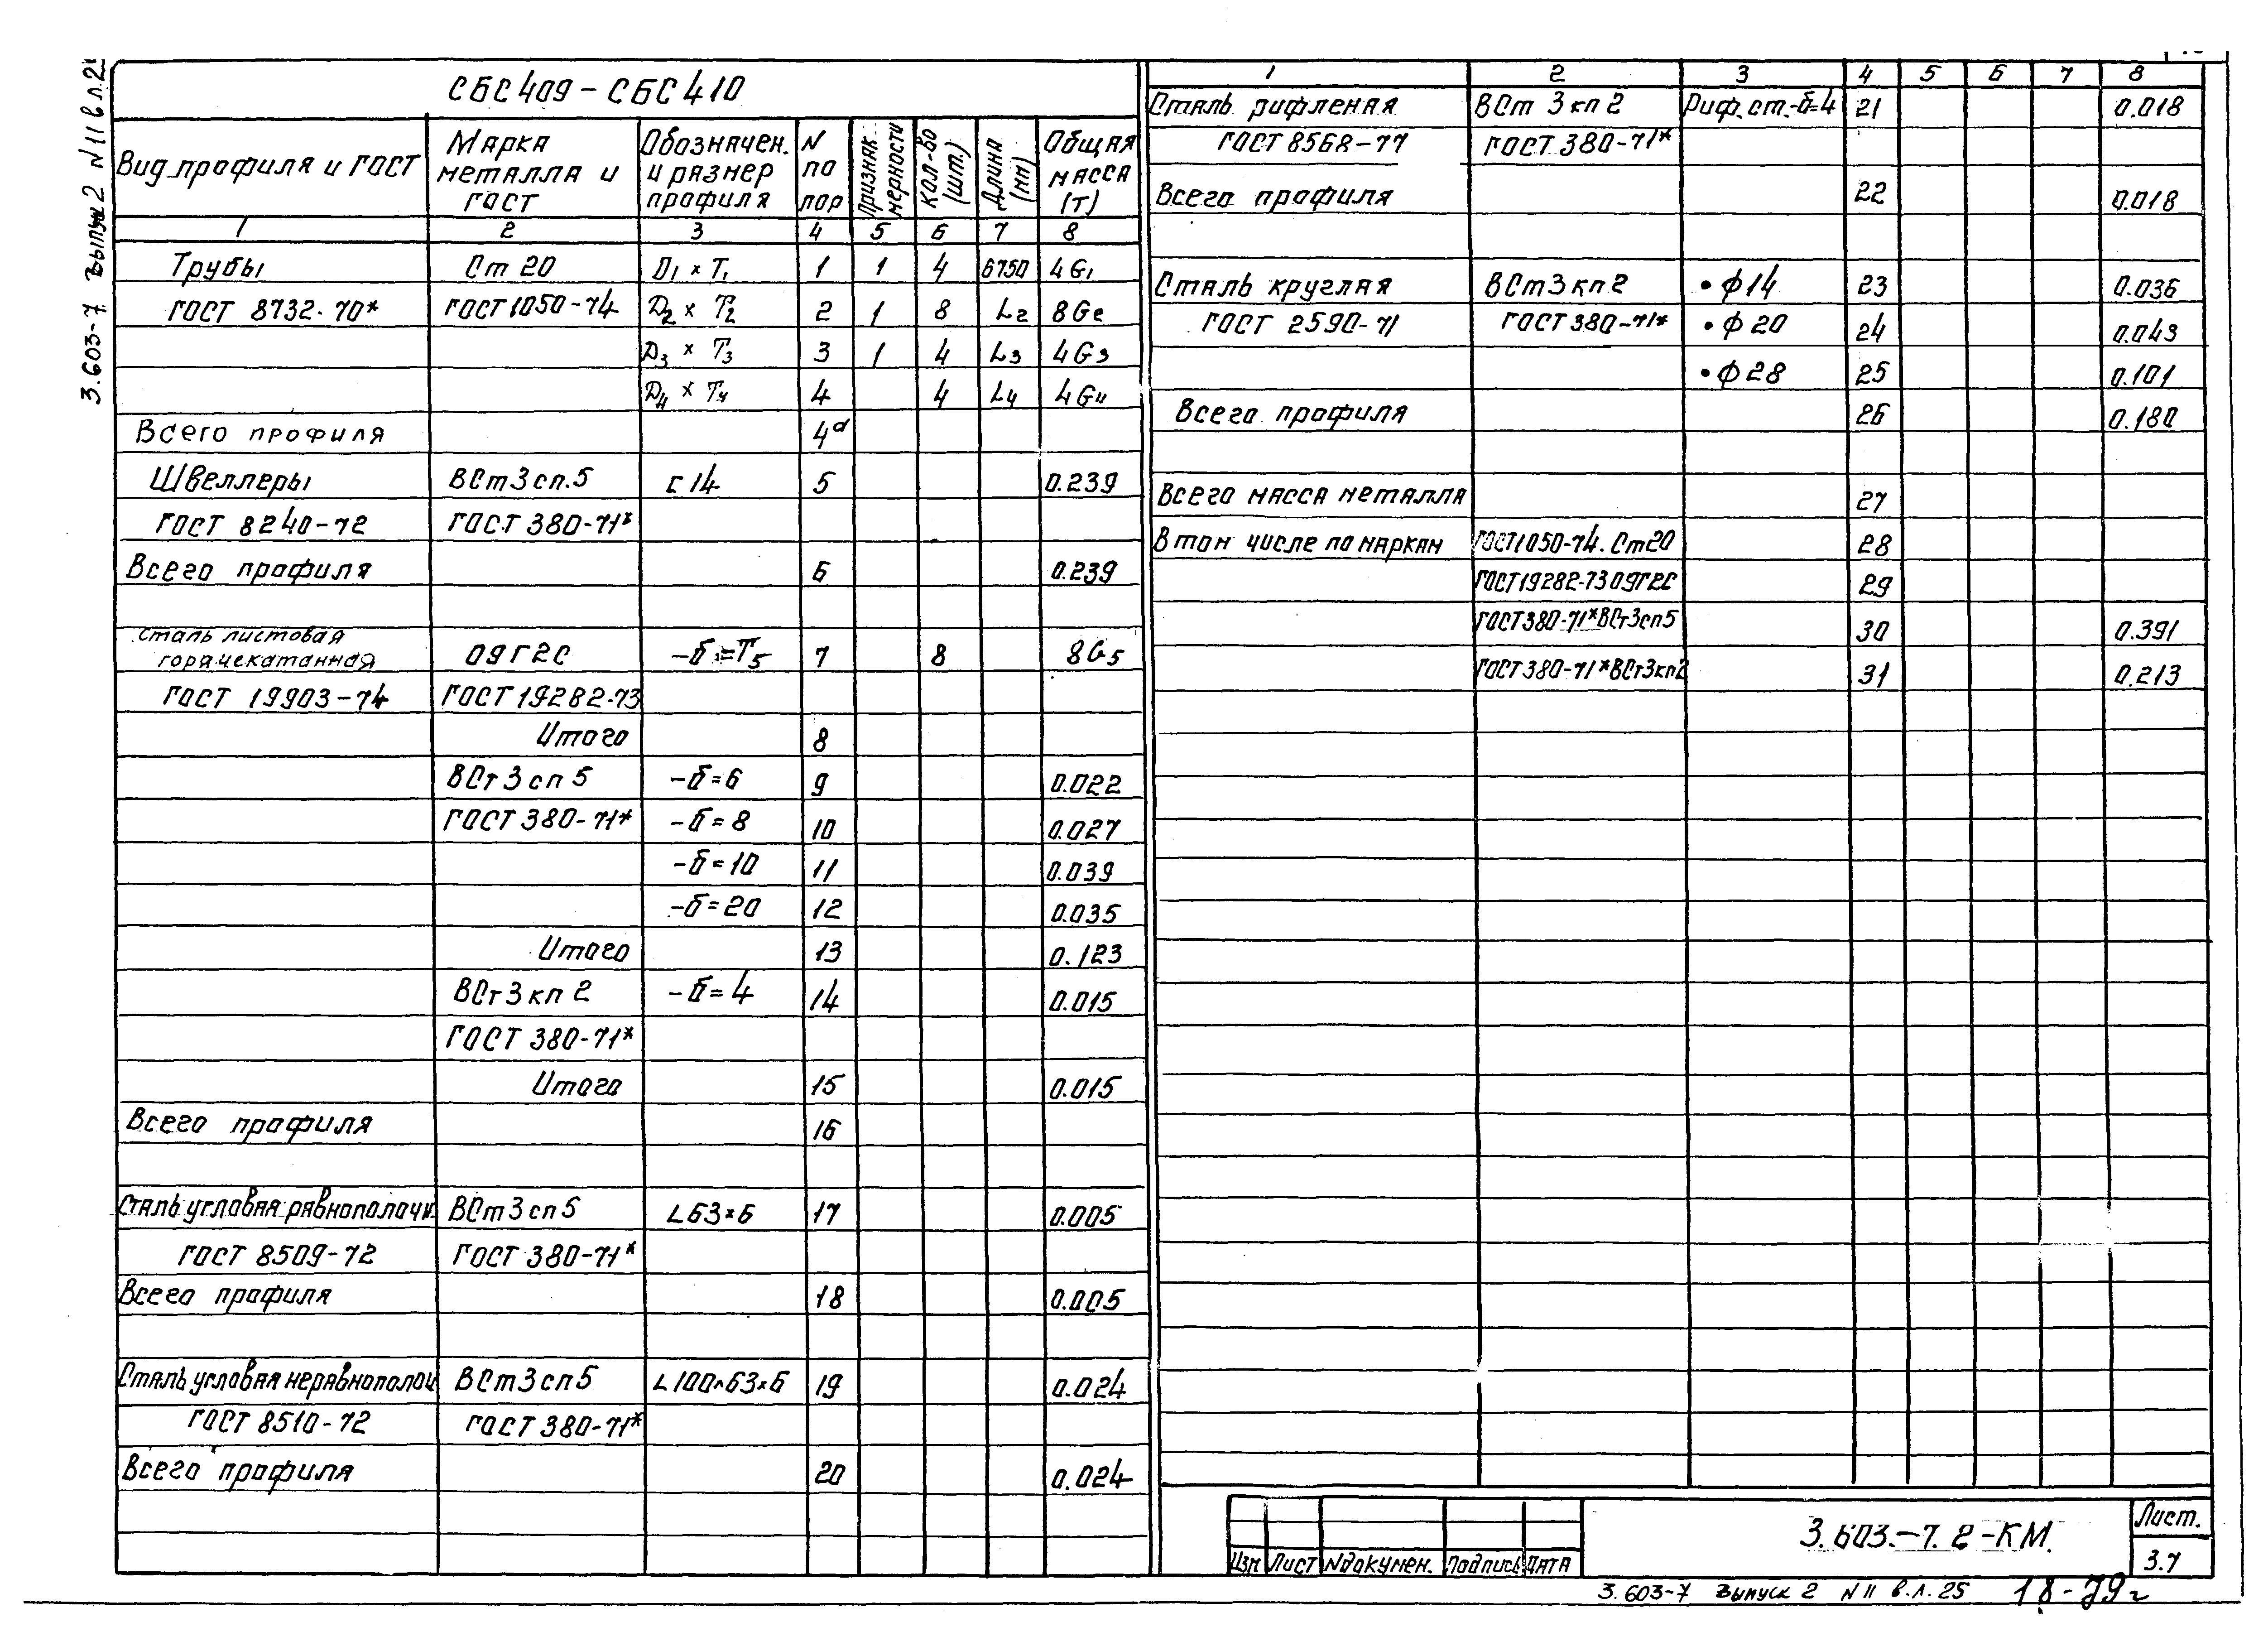 3.603-7 выпуск 2 N 11 в л.2
СБС 409 - СБС 410
Вид профиля и ГОСТ | Марка металла и ГОСТ | Обозначен. и размер профиля | N по пор | Признак мерности | Кол-во (шт.) | Длина (мм) | Общая масса (т)
1 2 3 4 5 6 7 8
Трубы Ст 20 D1 × T1 1 1 4 6750 4G1
ГОСТ 8732-70* ГОСТ 1050-74 D2 × T2 2 1 8 L2 8G2
D3 × T3 3 1 4 L3 4G3
D4 × T4 4 4 L4 4G4
Всего профиля 4а
Швеллеры ВСт3сп.5 [14 5 0.239
ГОСТ 8240-72 ГОСТ 380-71*
Всего профиля 6 0.239
Сталь листовая
горячекатанная 09Г2С -б=T5 7 8 8G5
ГОСТ 19903-74 ГОСТ 19282-73
Итого 8
ВСт3сп5 -б=6 9 0.022
ГОСТ 380-71* -б=8 10 0.027
-б=10 11 0.039
-б=20 12 0.035
Итого 13 0.123
ВСт3кп2 -б=4 14 0.015
ГОСТ 380-71*
Итого 15 0.015
Всего профиля 16
Сталь угловая равнополочн. ВСт3сп5 L63×6 17 0.005
ГОСТ 8509-72 ГОСТ 380-71*
Всего профиля 18 0.005
Сталь угловая неравнополоч ВСт3сп5 L100×63×6 19 0.024
ГОСТ 8510-72 ГОСТ 380-71*
Всего профиля 20 0.024
1 2 3 4 5 6 7 8
Сталь рифленая ВСт 3кп2 Риф.ст.-б=4 21 0.018
ГОСТ 8568-77 ГОСТ 380-71*
Всего профиля 22 0.018
Сталь круглая ВСт3кп2 •ф14 23 0.036
ГОСТ 2590-71 ГОСТ 380-71* •ф20 24 0.043
•ф28 25 0.101
Всего профиля 26 0.180
Всего масса металла 27
В том числе по маркам ГОСТ 1050-74. Ст20 28
ГОСТ 19282-73 09Г2С 29
ГОСТ 380-71* ВСт3сп5 30 0.391
ГОСТ 380-71* ВСт3кп2 31 0.213
Изм Лист N докумен. Подпись Дата
3.603.-7.2-КМ.
Лист.
3.7
3.603-7 Выпуск 2 N 11 в.л.25 18-79г